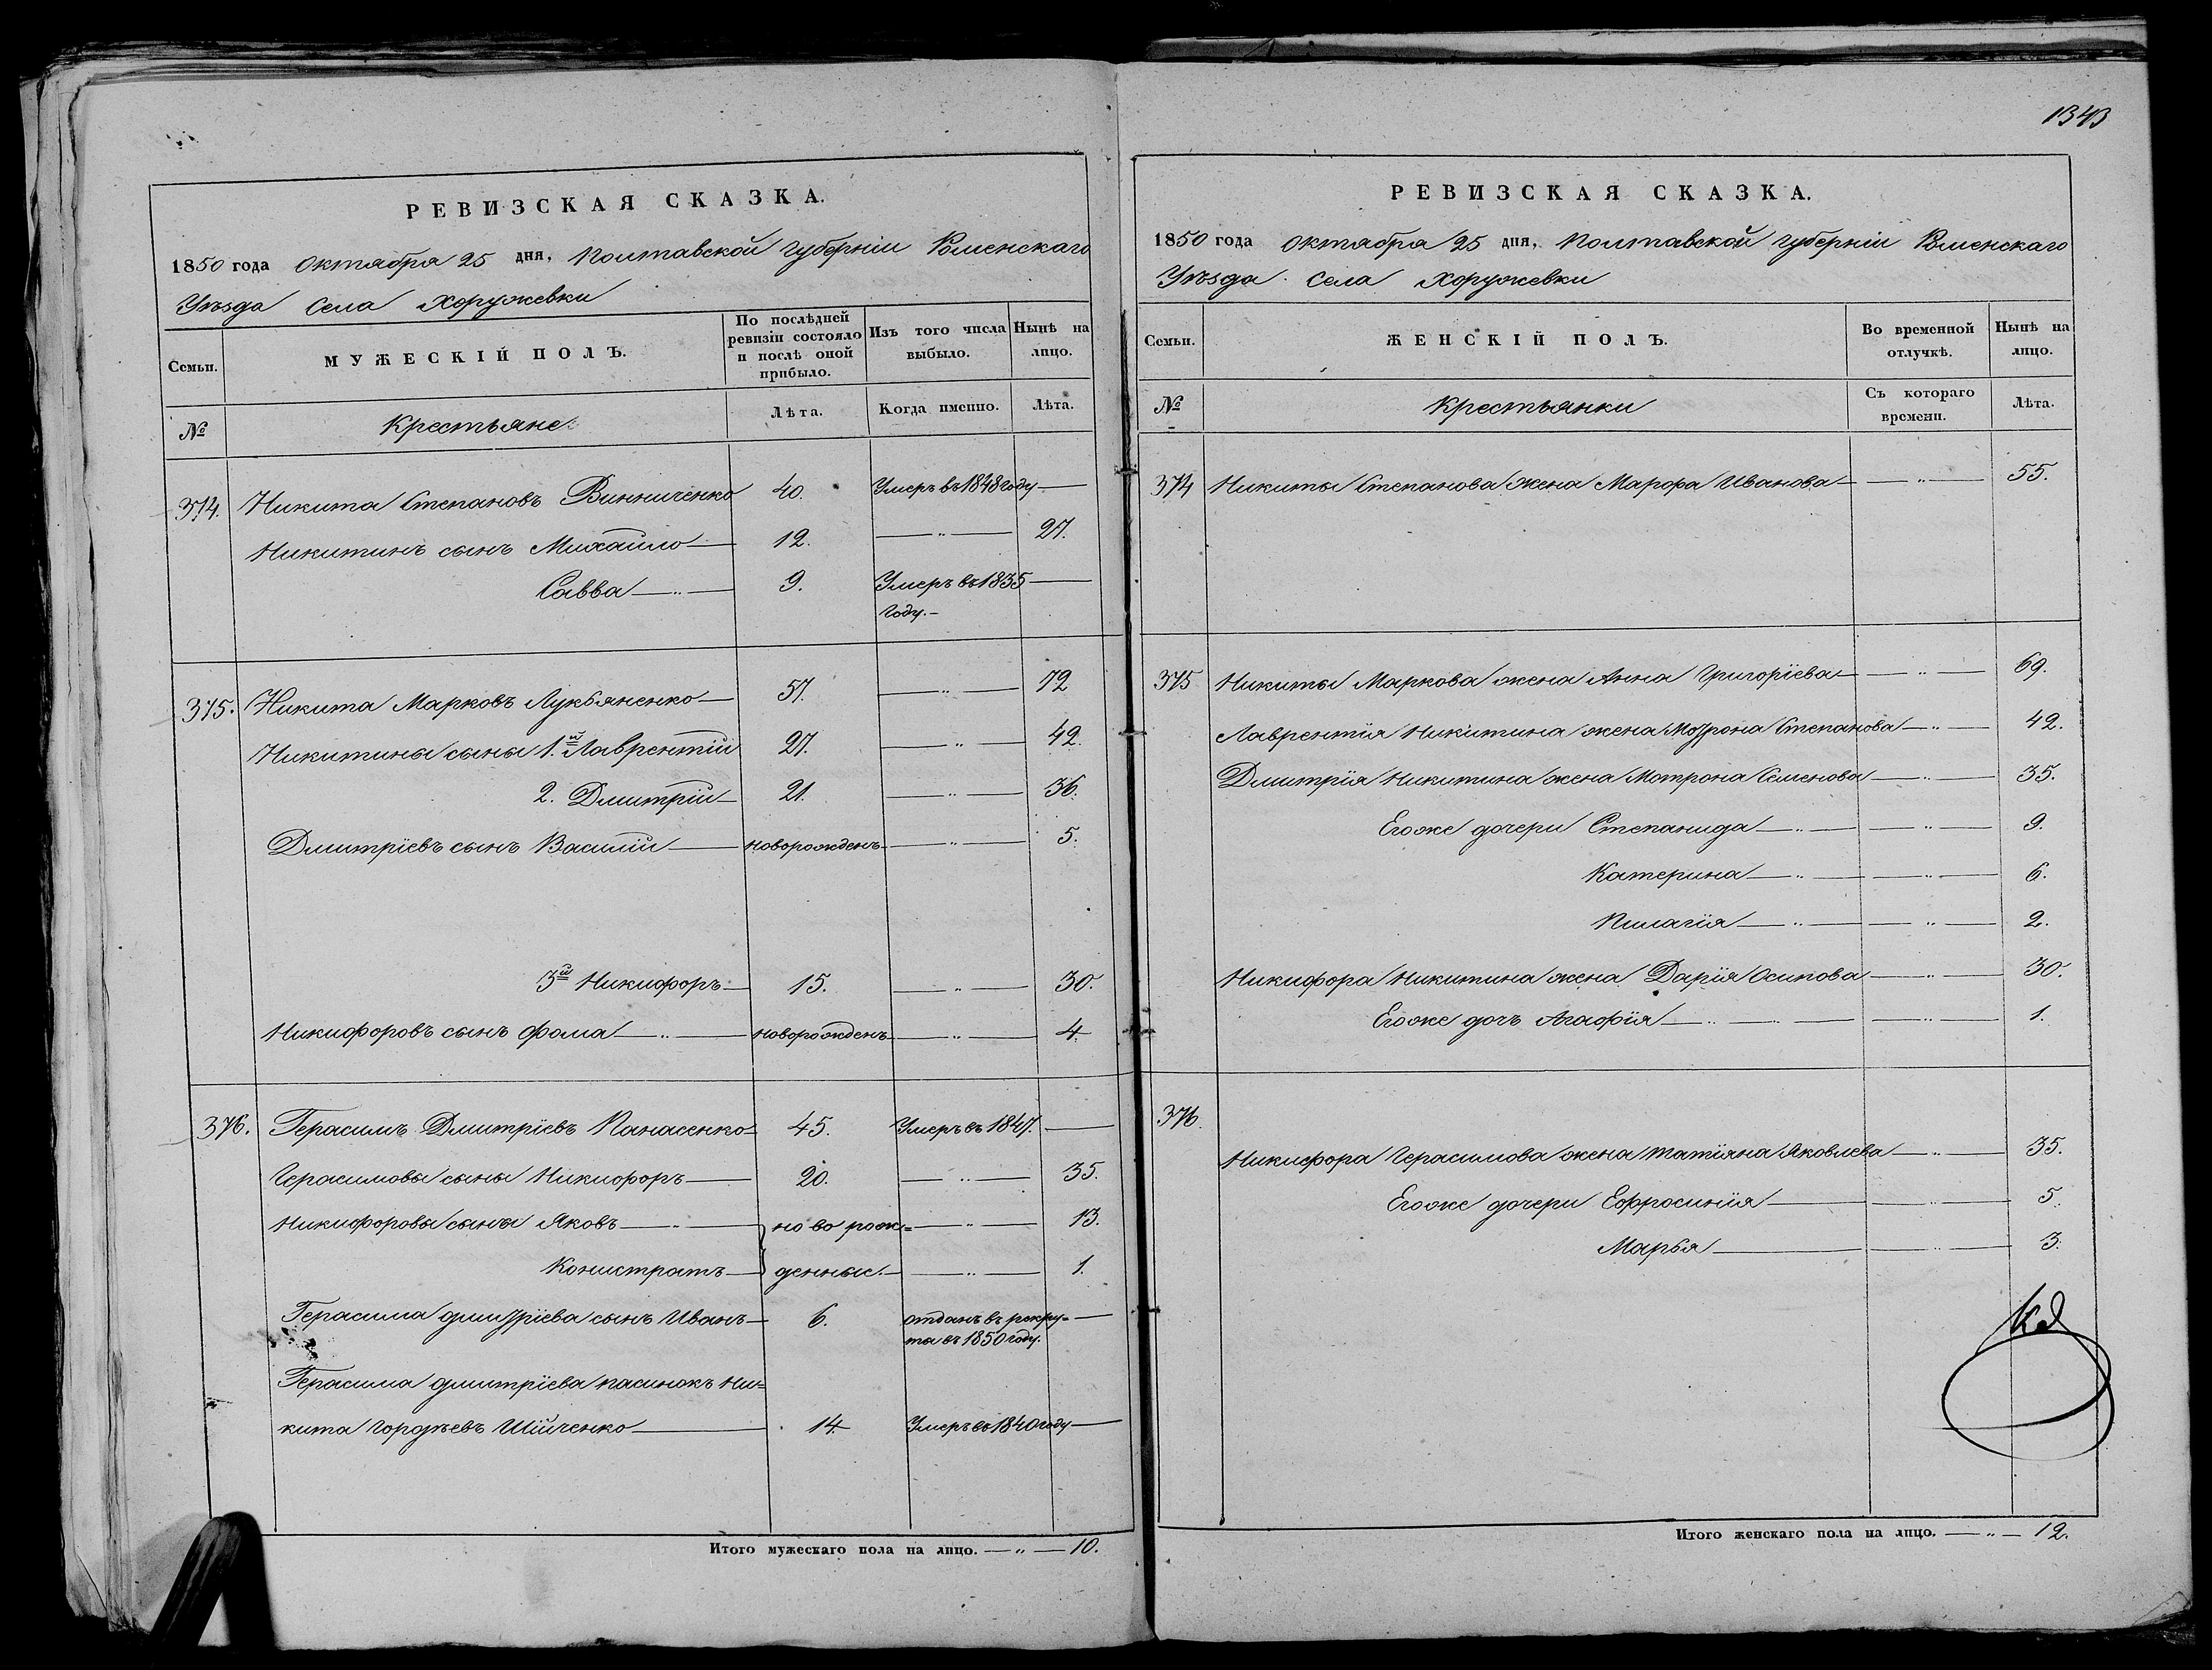 РЕВИЗСКАЯ СКАЗКА.
1850 года Октября 25 дня, Полтавской Губерніи Роменскаго
Уѣзда Села Хоружевки
Семьи.
МУЖЕСКІЙ ПОЛЪ.
По послѣдней ревизіи состояло и послѣ оной прибыло.
Изъ того числа выбыло.
Нынѣ на лицо.
№ Крестьяне. Лѣта. Когда именно. Лѣта.
374. Никита Степановъ Винниченко 40. Умеръ въ 1848 году —
Никитинъ сынъ Михайло — 12. — „ — 27.
Савва — „ — 9. Умеръ въ 1835 —
году. —
375. Никита Марковъ Лукьяненко — 57. — „ — 72
Никитины сыны 1.й Лаврентій 27. — „ — 42.
2. Дмитрій — 21. — „ — 36.
Дмитріевъ сынъ Василій — новорожденъ — „ — 5.
3й Никифоръ — 15. — „ — 30.
Никифоровъ сынъ Фома — „ — новорожденъ — „ — 4.
376. Герасимъ Дмитріевъ Панасенко — 45. Умеръ въ 1847. —
Герасимовы сыны Никифоръ — 20. — „ — 35.
Никифоровы сыны Яковъ — „ — но во рож= — „ — 13.
Конистратъ — денные. — — „ — 1.
Герасима Дмитріева сынъ Иванъ — 6. отданъ въ рекру= —
та въ 1850 году.
Герасима Дмитріева пасинокъ Ни=
кита Гордѣевъ Шійченко — 14. Умеръ въ 1840 году —
Итого мужескаго пола на лицо. — „ — 10.
1343
РЕВИЗСКАЯ СКАЗКА.
1850 года Октября 25 дня, Полтавской Губерніи Роменскаго
Уѣзда Села Хоружевки
Семьи.
ЖЕНСКІЙ ПОЛЪ.
Во временной отлучкѣ.
Нынѣ на лицо.
№ Крестьянки Съ котораго времени. Лѣта.
374 Никиты Степанова жена Марфа Иванова — — „ — 55.
375 Никиты Маркова жена Анна Григоріева — — „ — 69.
Лаврентія Никитина жена Мотрона Степанова — „ — 42.
Дмитрія Никитина жена Мотрона Семенова — „ — 35.
Егоже дочери Степанида — „ — — „ — 9.
Катерина — „ — — „ — 6.
Пилагія — „ — — „ — 2.
Никифора Никитина жена Дарія Осипова — „ — 30.
Егоже дочь Агафія — „ — „ — — „ — 1.
376.
Никифора Герасимова жена Татіяна Яковлева — „ — 35.
Егоже дочери Ефросинія — — „ — 5.
Марья — — „ — 3.
Итого женскаго пола на лицо. — „ — 12.